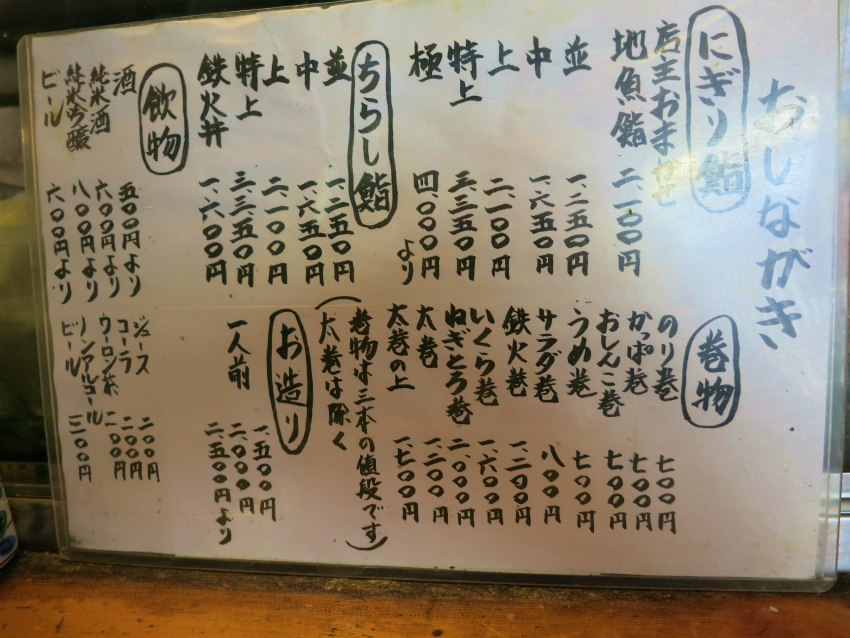 おしながき
にぎり鮨
店主おまかせ
地魚鮨 二、一〇〇円
並 一、二五〇円
中 一、六五〇円
上 二、一〇〇円
特上 三、三五〇円
極 四、〇〇〇円より
ちらし鮨
並 一、二五〇円
中 一、六五〇円
上 二、一〇〇円
特上 三、三五〇円
鉄火丼 一、六〇〇円
飲物
酒 五〇〇円より
純米酒 六〇〇円より
純米吟醸 八〇〇円より
ビール 六〇〇円より
巻物
のり巻 七〇〇円
かっぱ巻 七〇〇円
おしんこ巻 七〇〇円
うめ巻 七〇〇円
サラダ巻 八〇〇円
鉄火巻 一、二〇〇円
いくら巻 一、六〇〇円
ねぎとろ巻 二、〇〇〇円
太巻 一、二〇〇円
太巻の上 一、七〇〇円
(巻物は三本の値段です)
太巻は除く
お造り
一人前 一、五〇〇円
二、〇〇〇円
二、五〇〇円より
ジュース 二〇〇円
コーラ 二〇〇円
ウーロン茶 二〇〇円
ノンアルコール
ビール 三〇〇円